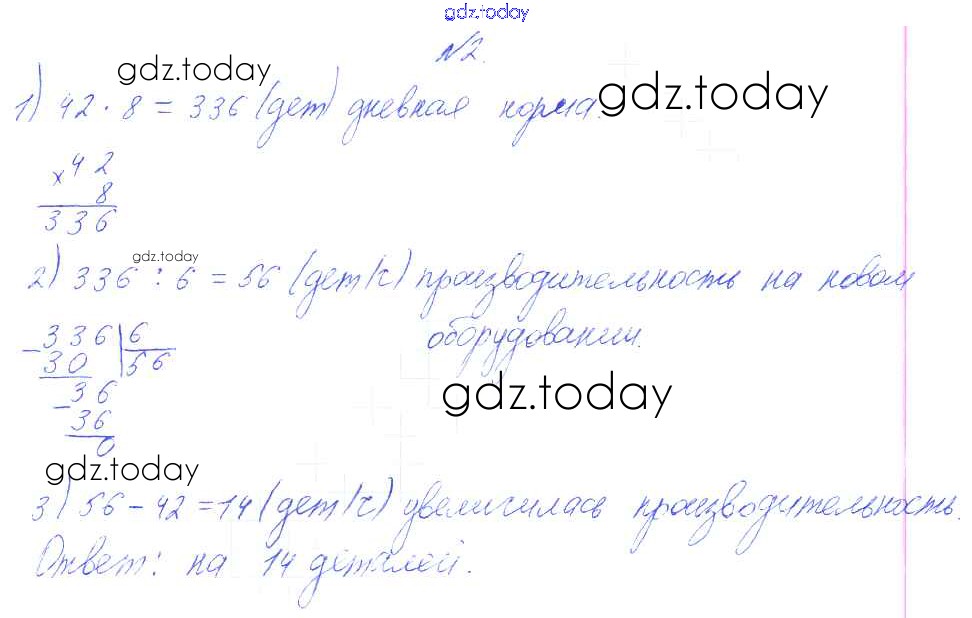 gdz.today
№2.
gdz.today
1) 42 · 8 = 336 (дет) дневная норма.
gdz.today
× 42
8
336
gdz.today
2) 336 : 6 = 56 (дет/ч) производительность на новом
оборудовании.
- 336 | 6
30 56
- 36
36
0
gdz.today
gdz.today
3) 56 - 42 = 14 (дет/ч) увеличилась производительность.
Ответ: на 14 деталей.